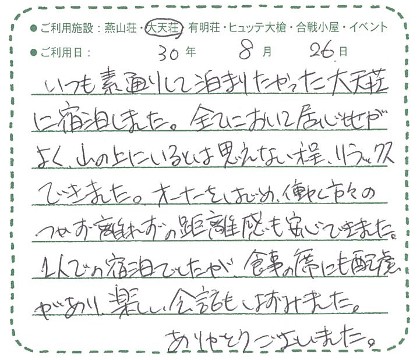 ●ご利用施設：燕山荘・大天荘・有明荘・ヒュッテ大槍・合戦小屋・イベント
●ご利用日： 30年 8月 26日
いつも素通りして泊まりたかった大天荘
に宿泊しました。全てにおいて居心地が
よく、山の上にいるとは思えない程、リラックス
できました。オーナーをはじめ、働く方々の
つかず離れずの距離感も安心できました。
1人での宿泊でしたが、食事の席にも配慮
があり、楽しい会話もはずみました。
ありがとうございました。